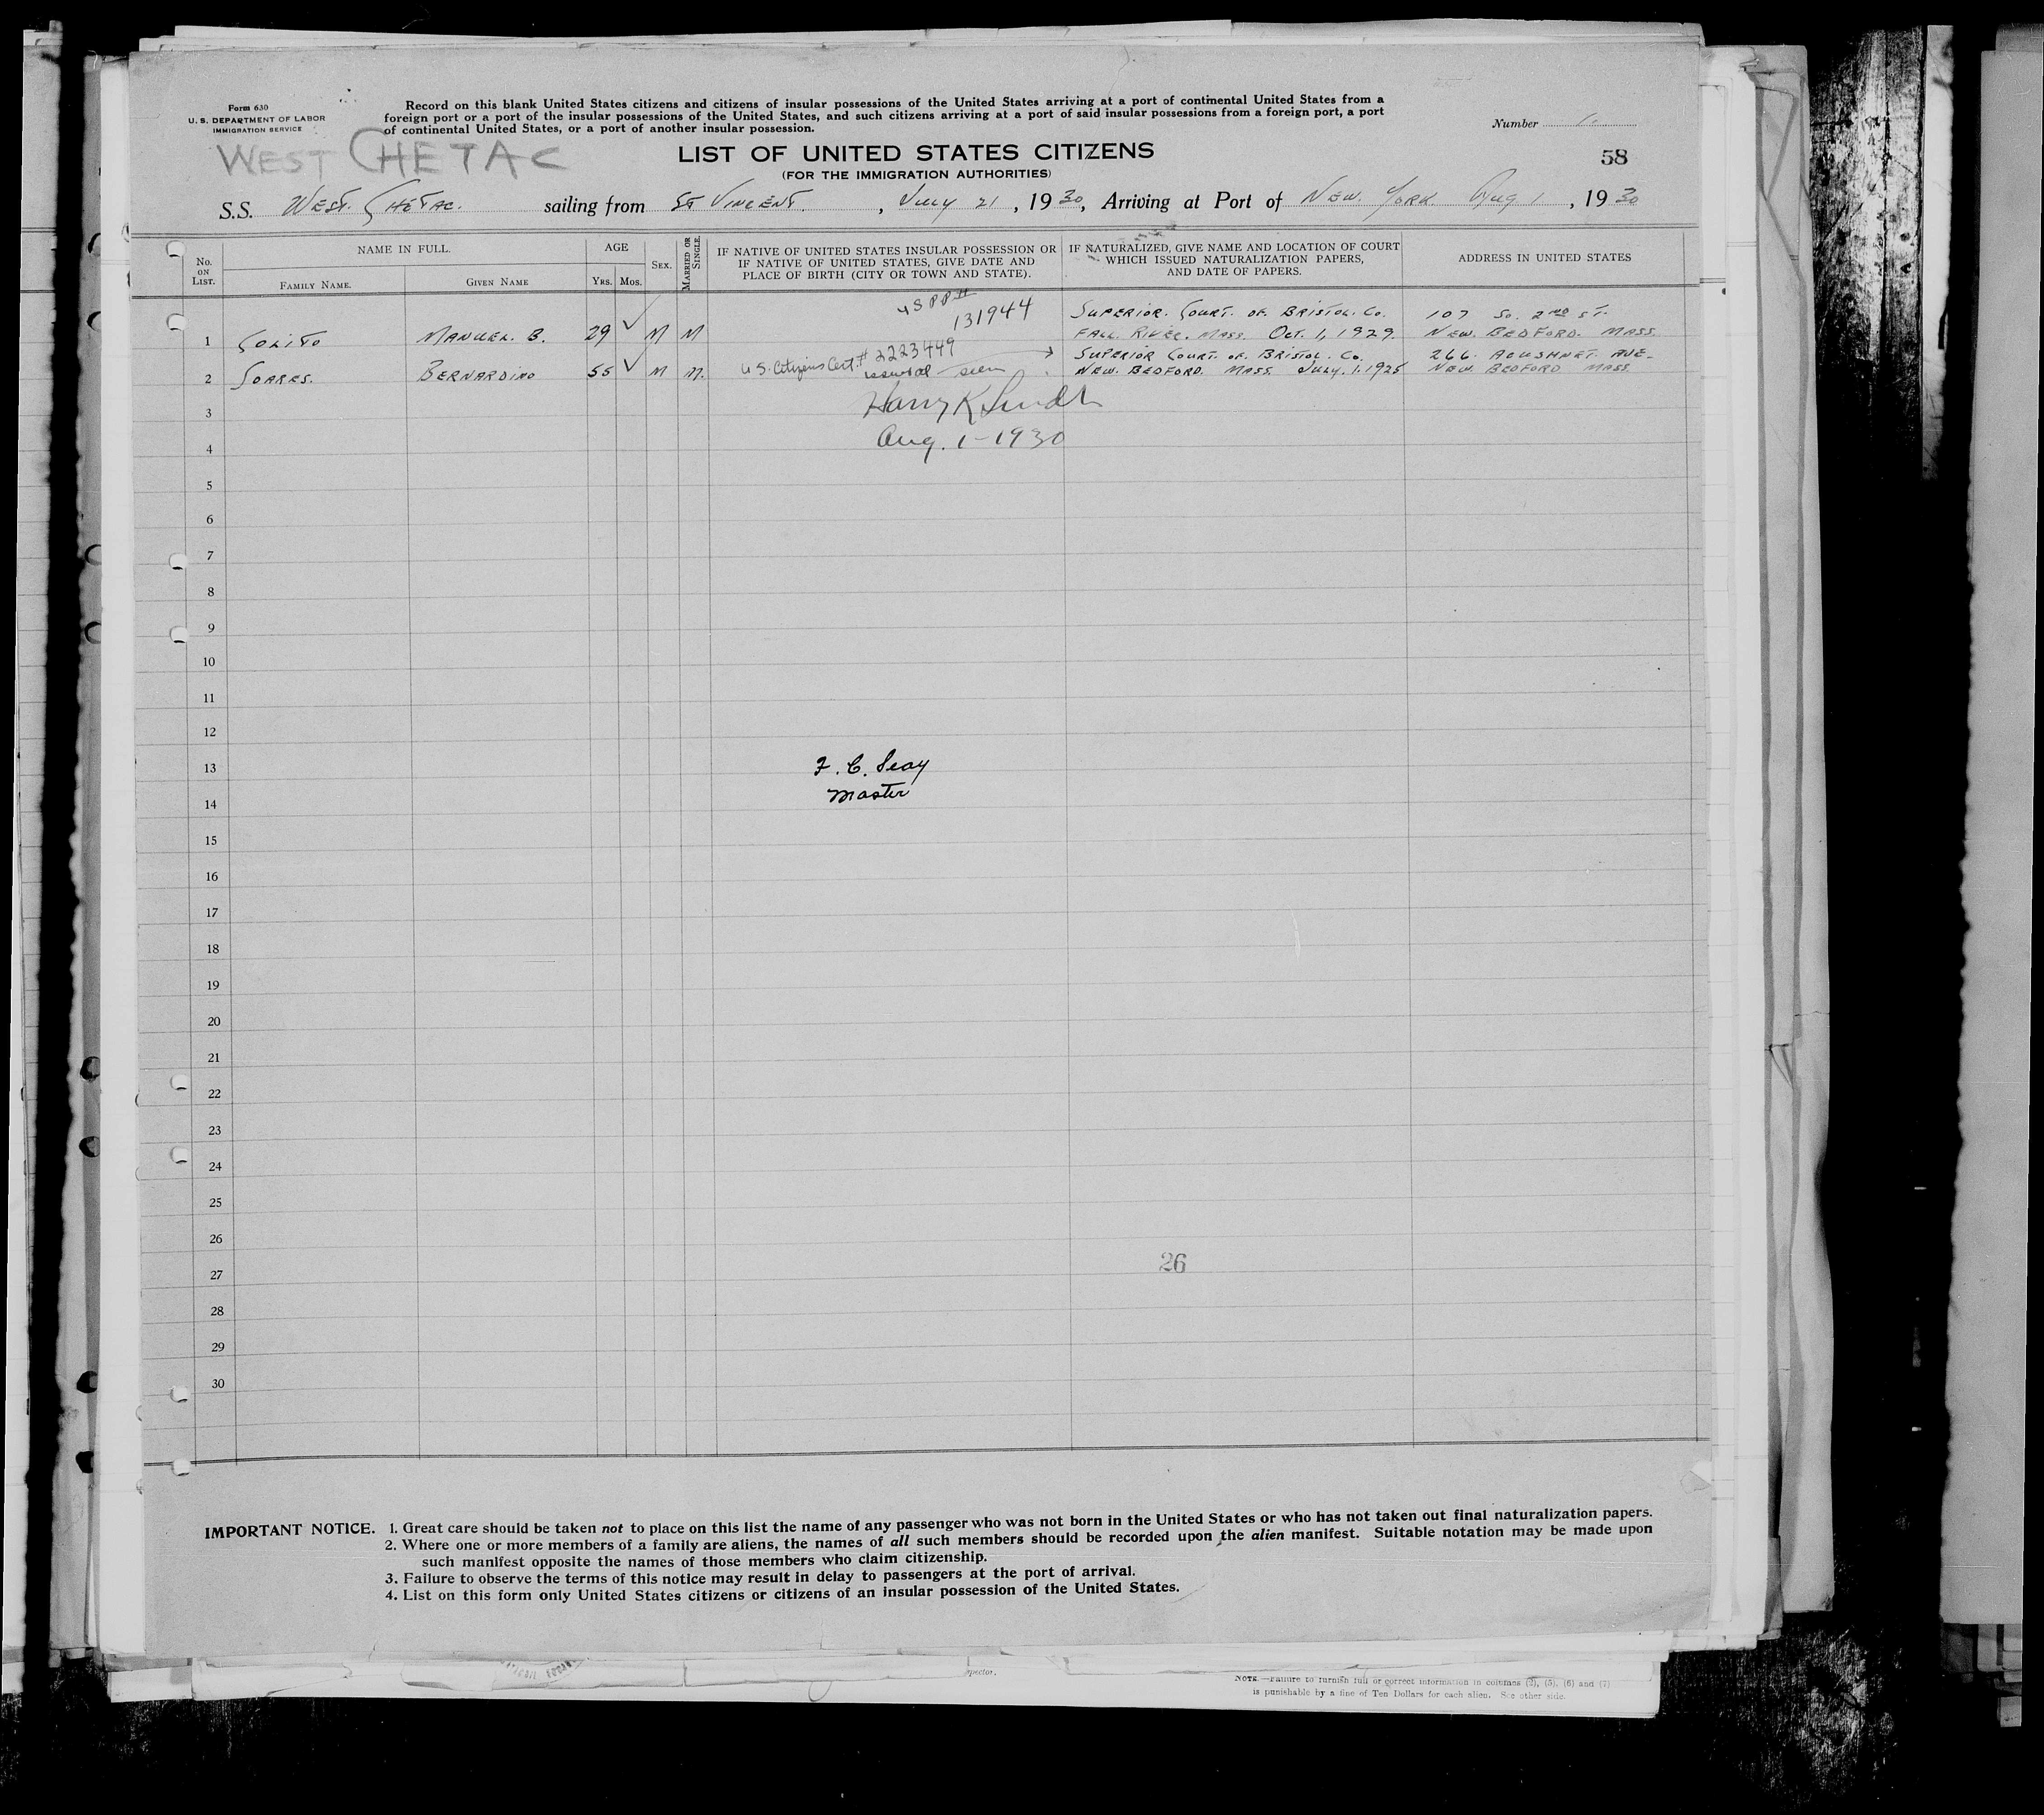 Form 630
U. S. DEPARTMENT OF LABOR
IMMIGRATION SERVICE
Record on this blank United States citizens and citizens of insular possessions of the United States arriving at a port of continental United States from a
foreign port or a port of the insular possessions of the United States, and such citizens arriving at a port of said insular possessions from a foreign port, a port
of continental United States, or a port of another insular possession.
Number 1.
WEST CHETAC
LIST OF UNITED STATES CITIZENS
58
(FOR THE IMMIGRATION AUTHORITIES)
S.S. WEST. CHETAC. sailing from ST VINCENT. , JULY 21 , 1930, Arriving at Port of NEW. YORK Aug 1 , 1930
No. ON LIST.
NAME IN FULL.
FAMILY NAME.
GIVEN NAME
AGE
YRS.
MOS.
SEX.
MARRIED OR SINGLE.
IF NATIVE OF UNITED STATES INSULAR POSSESSION OR
IF NATIVE OF UNITED STATES, GIVE DATE AND
PLACE OF BIRTH (CITY OR TOWN AND STATE).
IF NATURALIZED, GIVE NAME AND LOCATION OF COURT
WHICH ISSUED NATURALIZATION PAPERS,
AND DATE OF PAPERS.
ADDRESS IN UNITED STATES
U S P P #
131944
SUPERIOR. COURT. OF. BRISTOL. CO. 107 SO. 2ND ST.
1 MANUEL. B. 29 M M FALL RIVER. MASS. OCT. 1, 1929. NEW. BEDFORD. MASS.
U.S. Citizens Cert. # 2223449 SUPERIOR COURT. OF. BRISTOL. CO. 266. ACUSHNET AVE-
2 SOARES. BERNARDINO 55 M M. seen NEW. BEDFORD. MASS. JULY. 1. 1925 NEW BEDFORD MASS.
3 Harry K
4 Aug. 1-1930
5
6
7
8
9
10
11
12
13 F. C. Seay
14 Master
15
16
17
18
19
20
21
22
23
24
25
26
26
27
28
29
30
IMPORTANT NOTICE. 1. Great care should be taken not to place on this list the name of any passenger who was not born in the United States or who has not taken out final naturalization papers.
2. Where one or more members of a family are aliens, the names of all such members should be recorded upon the alien manifest. Suitable notation may be made upon
such manifest opposite the names of those members who claim citizenship.
3. Failure to observe the terms of this notice may result in delay to passengers at the port of arrival.
4. List on this form only United States citizens or citizens of an insular possession of the United States.
NOTE.—Failure to furnish full or correct information in columns (2), (5), (6) and (7)
is punishable by a fine of Ten Dollars for each alien. See other side.